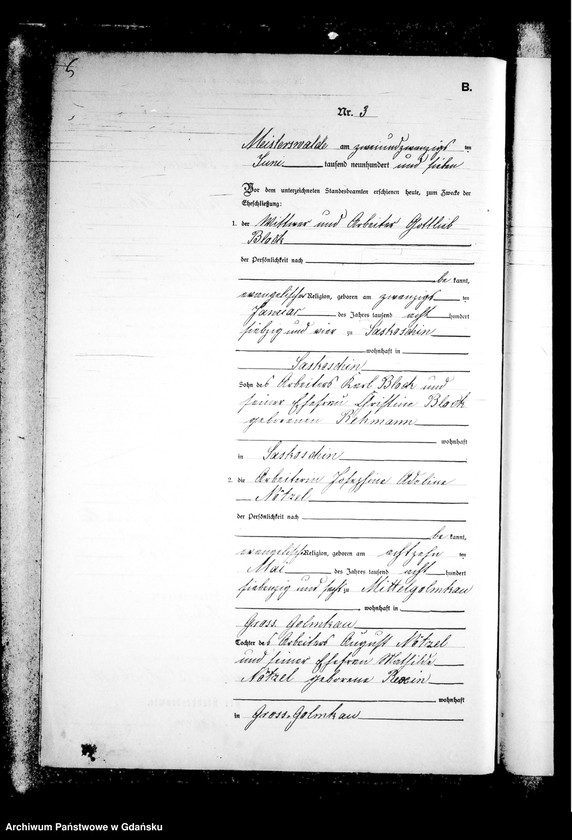 5
B.
Nr. 3
Meisterswalde am zweiundzwanzigsten
Juni tausend neunhundert und sieben
Vor dem unterzeichneten Standesbeamten erschienen heute, zum Zwecke der
Eheschließung:
1. der Witwer und Arbeiter Gottlieb
Block
der Persönlichkeit nach
be kannt,
evangelischer Religion, geboren am zwanzigsten
Januar des Jahres tausend acht hundert
siebzig und vier zu Saskoschin
wohnhaft in
Saskoschin
Sohn des Arbeiters Karl Block und
seiner Ehefrau Christine Block
geborenen Rehmann
wohnhaft
in Saskoschin
2. die Arbeiterin Josephine Adoline
Nötzel
der Persönlichkeit nach
be kannt,
evangelischer Religion, geboren am achtzehnten
Mai des Jahres tausend acht hundert
siebenzig und sechs zu Mittelgolmkau
, wohnhaft in
Gross Golmkau
Tochter des Arbeiters August Nötzel
und seiner Ehefrau Mathilde
Nötzel geborene Rexin
wohnhaft
in Gross-Golmkau
Archiwum Państwowe w Gdańsku